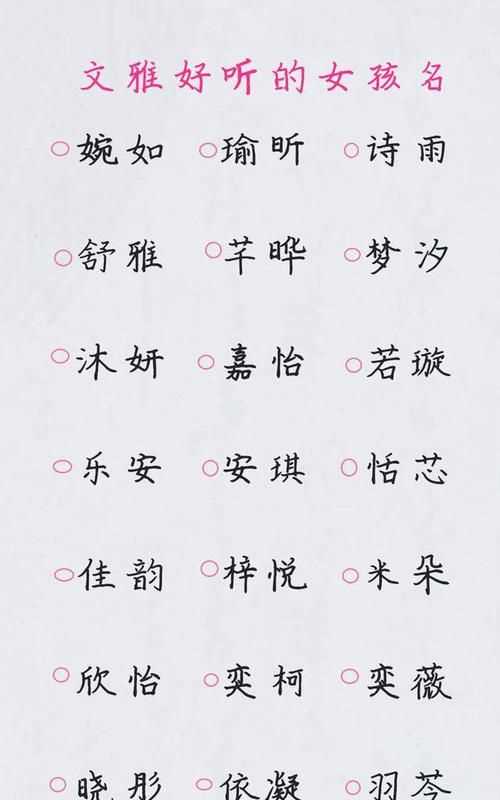 文雅好听的女孩名
婉如 瑜昕 诗雨
舒雅 芊晔 梦汐
沐妍 嘉怡 若璇
乐安 安琪 恬芯
佳韵 梓悦 米朵
欣怡 奕柯 奕薇
晓彤 依凝 羽芩